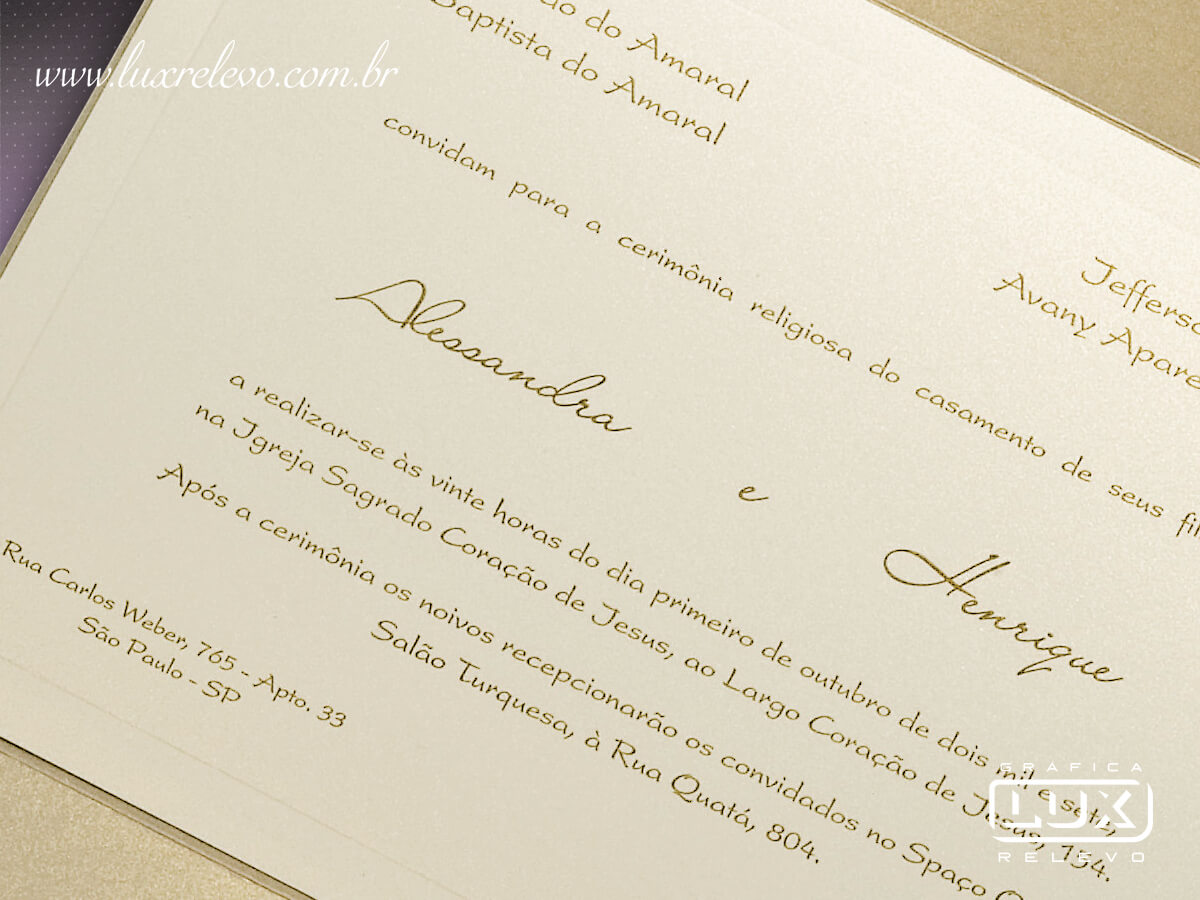 www.luxrelevo.com.br
do Amaral
Baptista do Amaral
Avany
convidam para a cerimônia religiosa do casamento de seus
Alessandra
e
Henrique
a realizar-se às vinte horas do dia primeiro de outubro de dois mil e sete,
na Igreja Sagrado Coração de Jesus, ao Largo Coração de Jesus, 154.
Após a cerimônia os noivos recepcionarão os convidados no Spaço
Salão Turquesa, à Rua Quatá, 804.
Rua Carlos Weber, 765 - Apto. 33
São Paulo - SP
GRAFICA
LUX
RELEVO